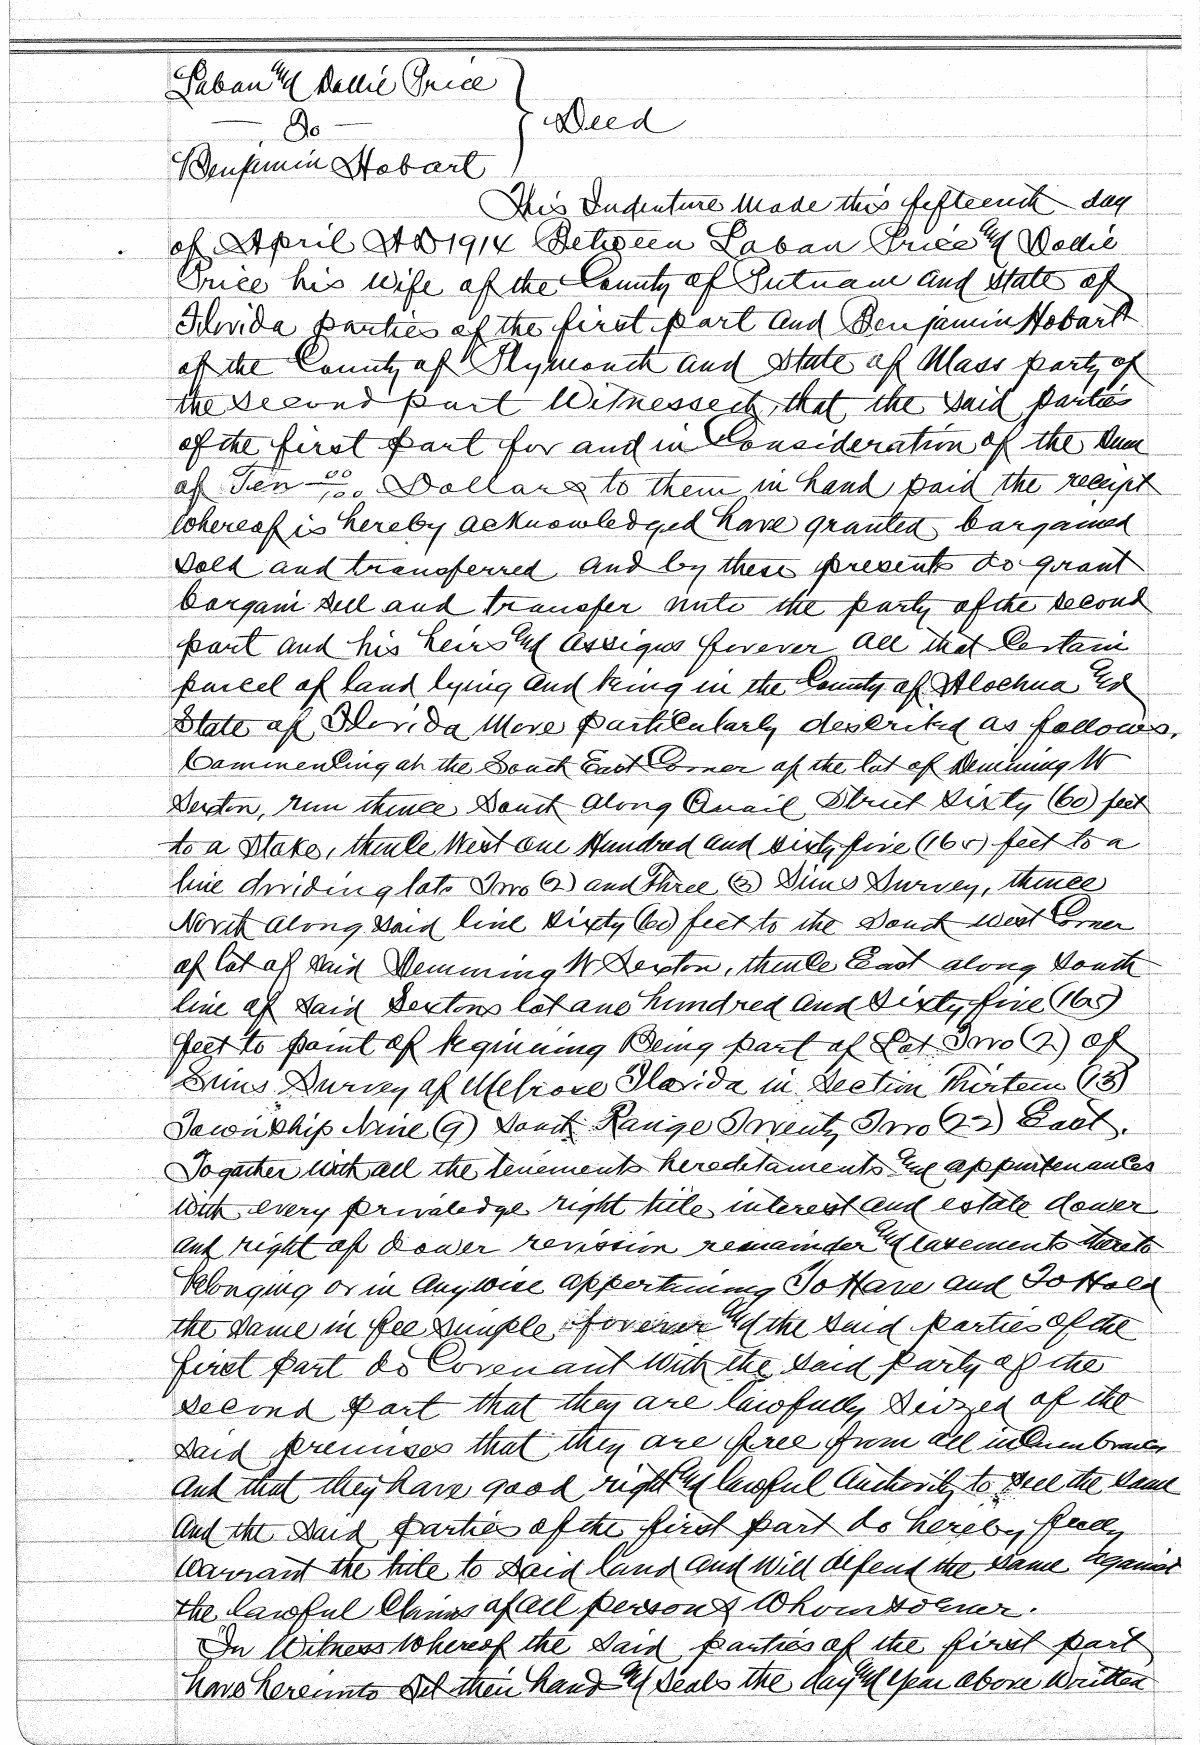 Laban and Dollie Price
— To —
Benjamin Hobart
} Deed
This Indenture Made this fifteenth day
of April AD 1914 Between Laban Price and Dollie
Price his wife of the County of Putnam and State of
Florida parties of the first part and Benjamin Hobart
of the County of Plymouth and State of Mass party of
the second part Witnesseth, that the said parties
of the first part for and in Consideration of the Sum
of Ten 00/100 Dollars to them in hand paid the receipt
whereof is hereby acknowledged have granted bargained
sold and transferred and by these presents do grant
bargain sell and transfer unto the party of the second
part and his heirs and assigns forever all that Certain
parcel of land lying and being in the County of Alachua and
State of Florida More particularly described as follows.
Commencing at the South East Corner of the lot of Demming W
Sexton, run thence South along Quail Street Sixty (60) feet
to a Stake, thence West one Hundred and sixty five (165) feet to a
line dividing lots Two (2) and Three (3) Sims Survey, thence
North along said line sixty (60) feet to the South west Corner
of lot of said Demming W Sexton, thence East along South
line of said Sextons lot one hundred and Sixty five (165)
feet to point of beginning Being part of Lot Two (2) of
Sims Survey of Melrose Florida in Section Thirteen (13)
Township Nine (9) South Range Twenty Two (22) East.
Together with all the tenements hereditaments and appurtenances
with every priviledge right title interest and estate dower
and right of dower revission remainder and easements thereto
belonging or in anywise appertaining To Have and To Hold
the same in fee simple forever and the said parties of the
first part do Covenant with the said party of the
second part that they are lawfully seized of the
said premises that they are free from all incumbrances
and that they have good right and lawful Authority to sell the same
and the said parties of the first part do hereby fully
warrant the title to said land and will defend the same against
the lawful Claims of all persons Whomsoever.
In Witness Whereof the said parties of the first part
have hereunto set their hand and seals the day and year above written